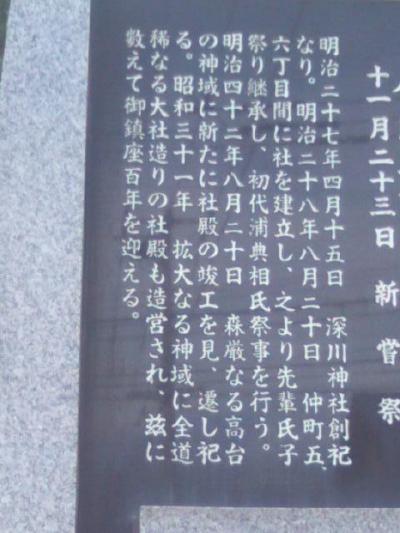 十一月二十三日 新嘗祭
明治二十七年四月十五日 深川神社創祀
なり。明治二十八年八月二十日 仲町五、
六丁目間に社を建立し、之より先輩氏子
祭り継承し、初代浦典相氏祭事を行う。
明治四十二年八月二十日 森厳なる高台
の神域に新たに社殿の竣工を見、遷し祀
る。昭和三十一年 拡大なる神域に全道
稀なる大社造りの社殿も造営され、玆に
数えて御鎮座百年を迎える。